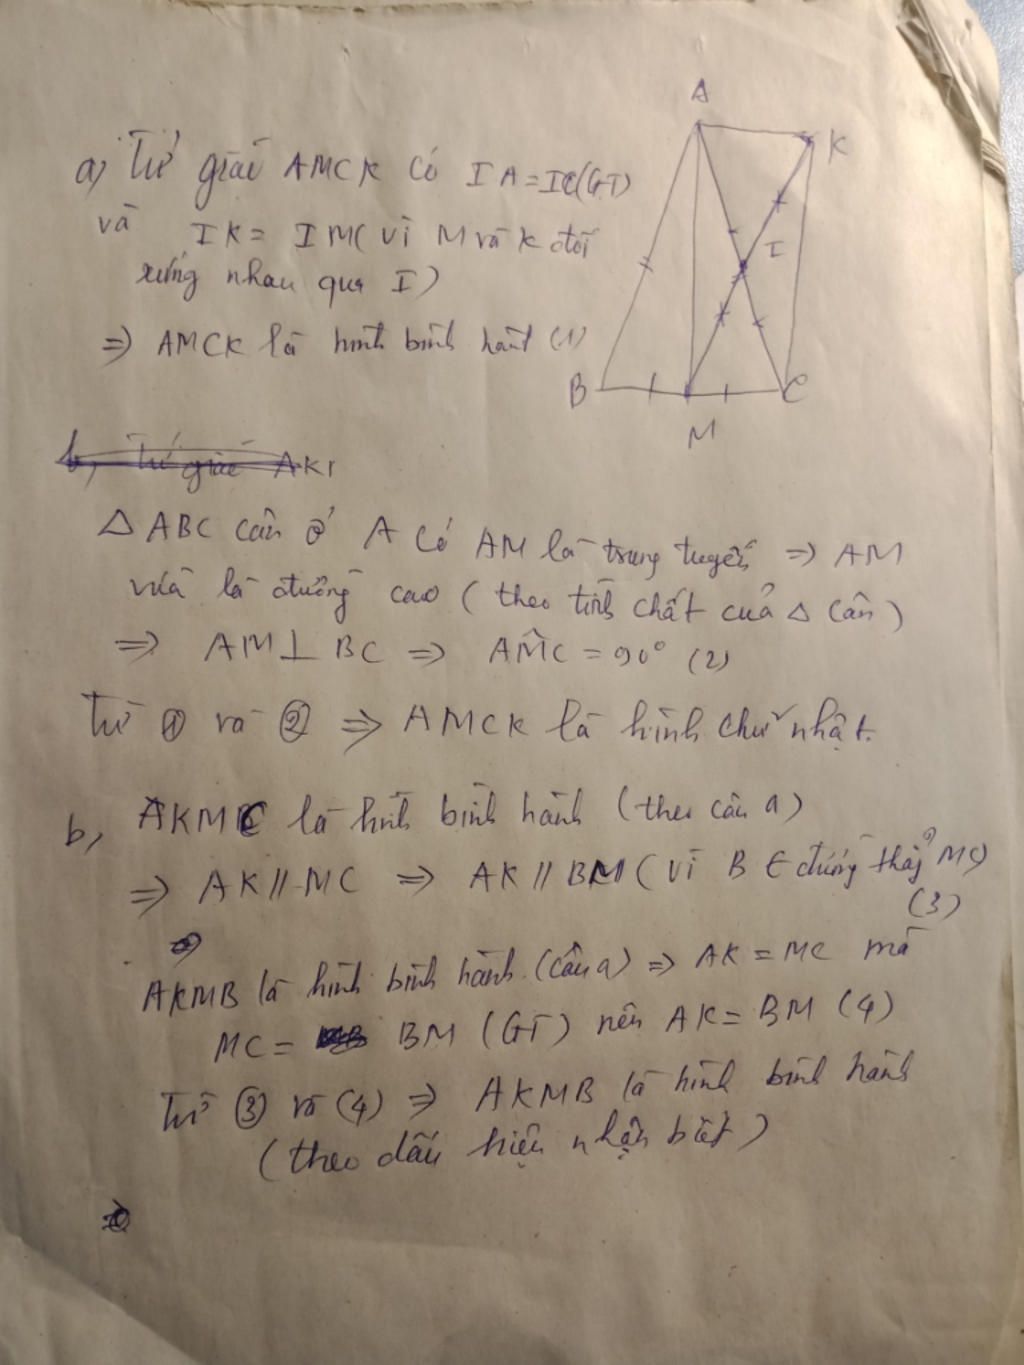 A
K
I
B
C
M
a, Tứ giác AMCK có IA = IC (GT)
và IK = IM (vì M và K đối
xứng nhau qua I)
=> AMCK là hình bình hành (1)
b, Tứ giác AK
△ ABC cân ở A có AM là trung tuyến => AM
vừa là đường cao (theo tính chất của △ cân)
=> AM ⊥ BC => AMC = 90° (2)
Từ ① và ② => AMCK là hình chữ nhật.
b, AKMC là hình bình hành (theo câu a)
=> AK // MC => AK // BM (vì B ∈ đường thẳng MC)
(3)
AKMB là hình bình hành (câu a) => AK = MC mà
MC = BM (GT) nên AK = BM (4)
Từ ③ và (4) => AKMB là hình bình hành
(theo dấu hiệu nhận biết)